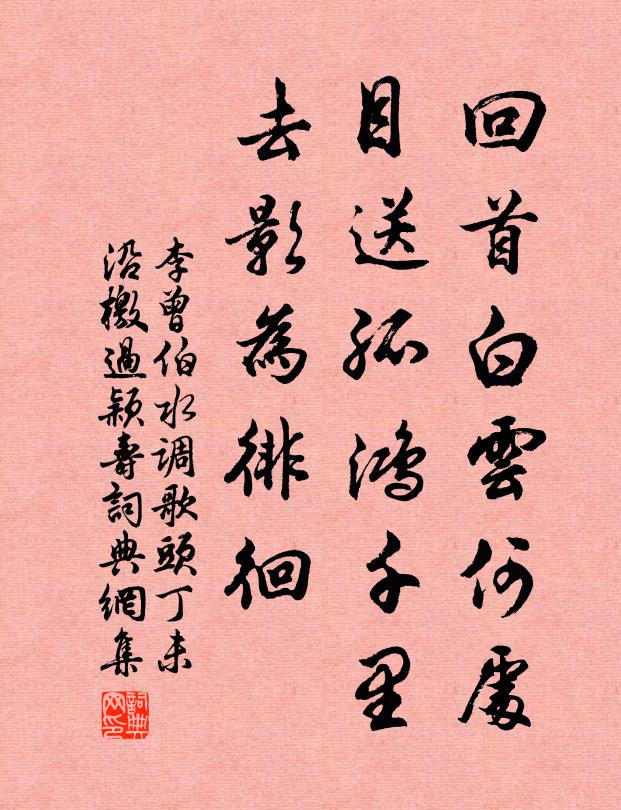 回首白雲何處
目送孤鴻千里
去影為徘徊
李曾伯水调歌頭丁未
沿檄過颍壽詞典網集
詞典网印